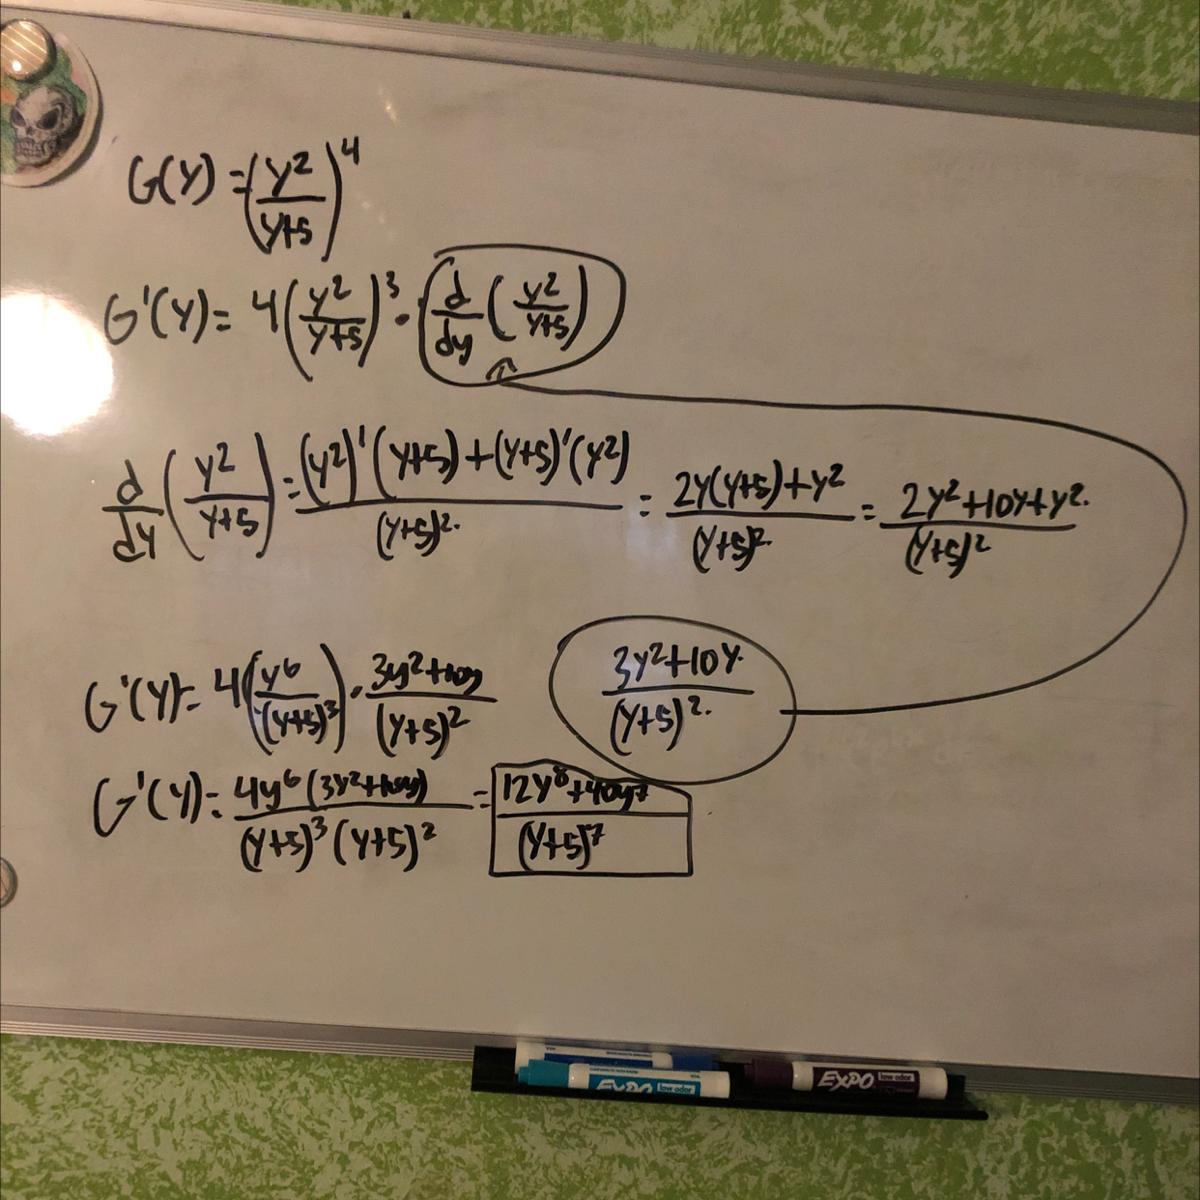 G(Y) = (y²/(y+5))⁴
G'(Y) = 4(y²/(y+5))³ · d/dy (y²/(y+5))
d/dy (y²/(y+5)) = ((y²)'(y+5)+(y+5)'(y²))/(y+5)² = (2y(y+5)+y²)/(y+5)² = (2y²+10y+y²)/(y+5)²
(3y²+10y)/(y+5)²
G'(Y) = 4(y⁶/(y+5)³) · (3y²+10y)/(y+5)²
G'(Y) = (4y⁶(3y²+10y))/((y+5)³(y+5)²) = (12y⁸+40y⁷)/(y+5)⁷
EXPO low odor
EXPO low odor